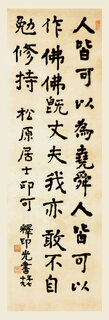 人皆可以為堯舜人皆可以
作佛佛既丈夫我亦敢不自
勉修持
松原居士印可
釋印光書